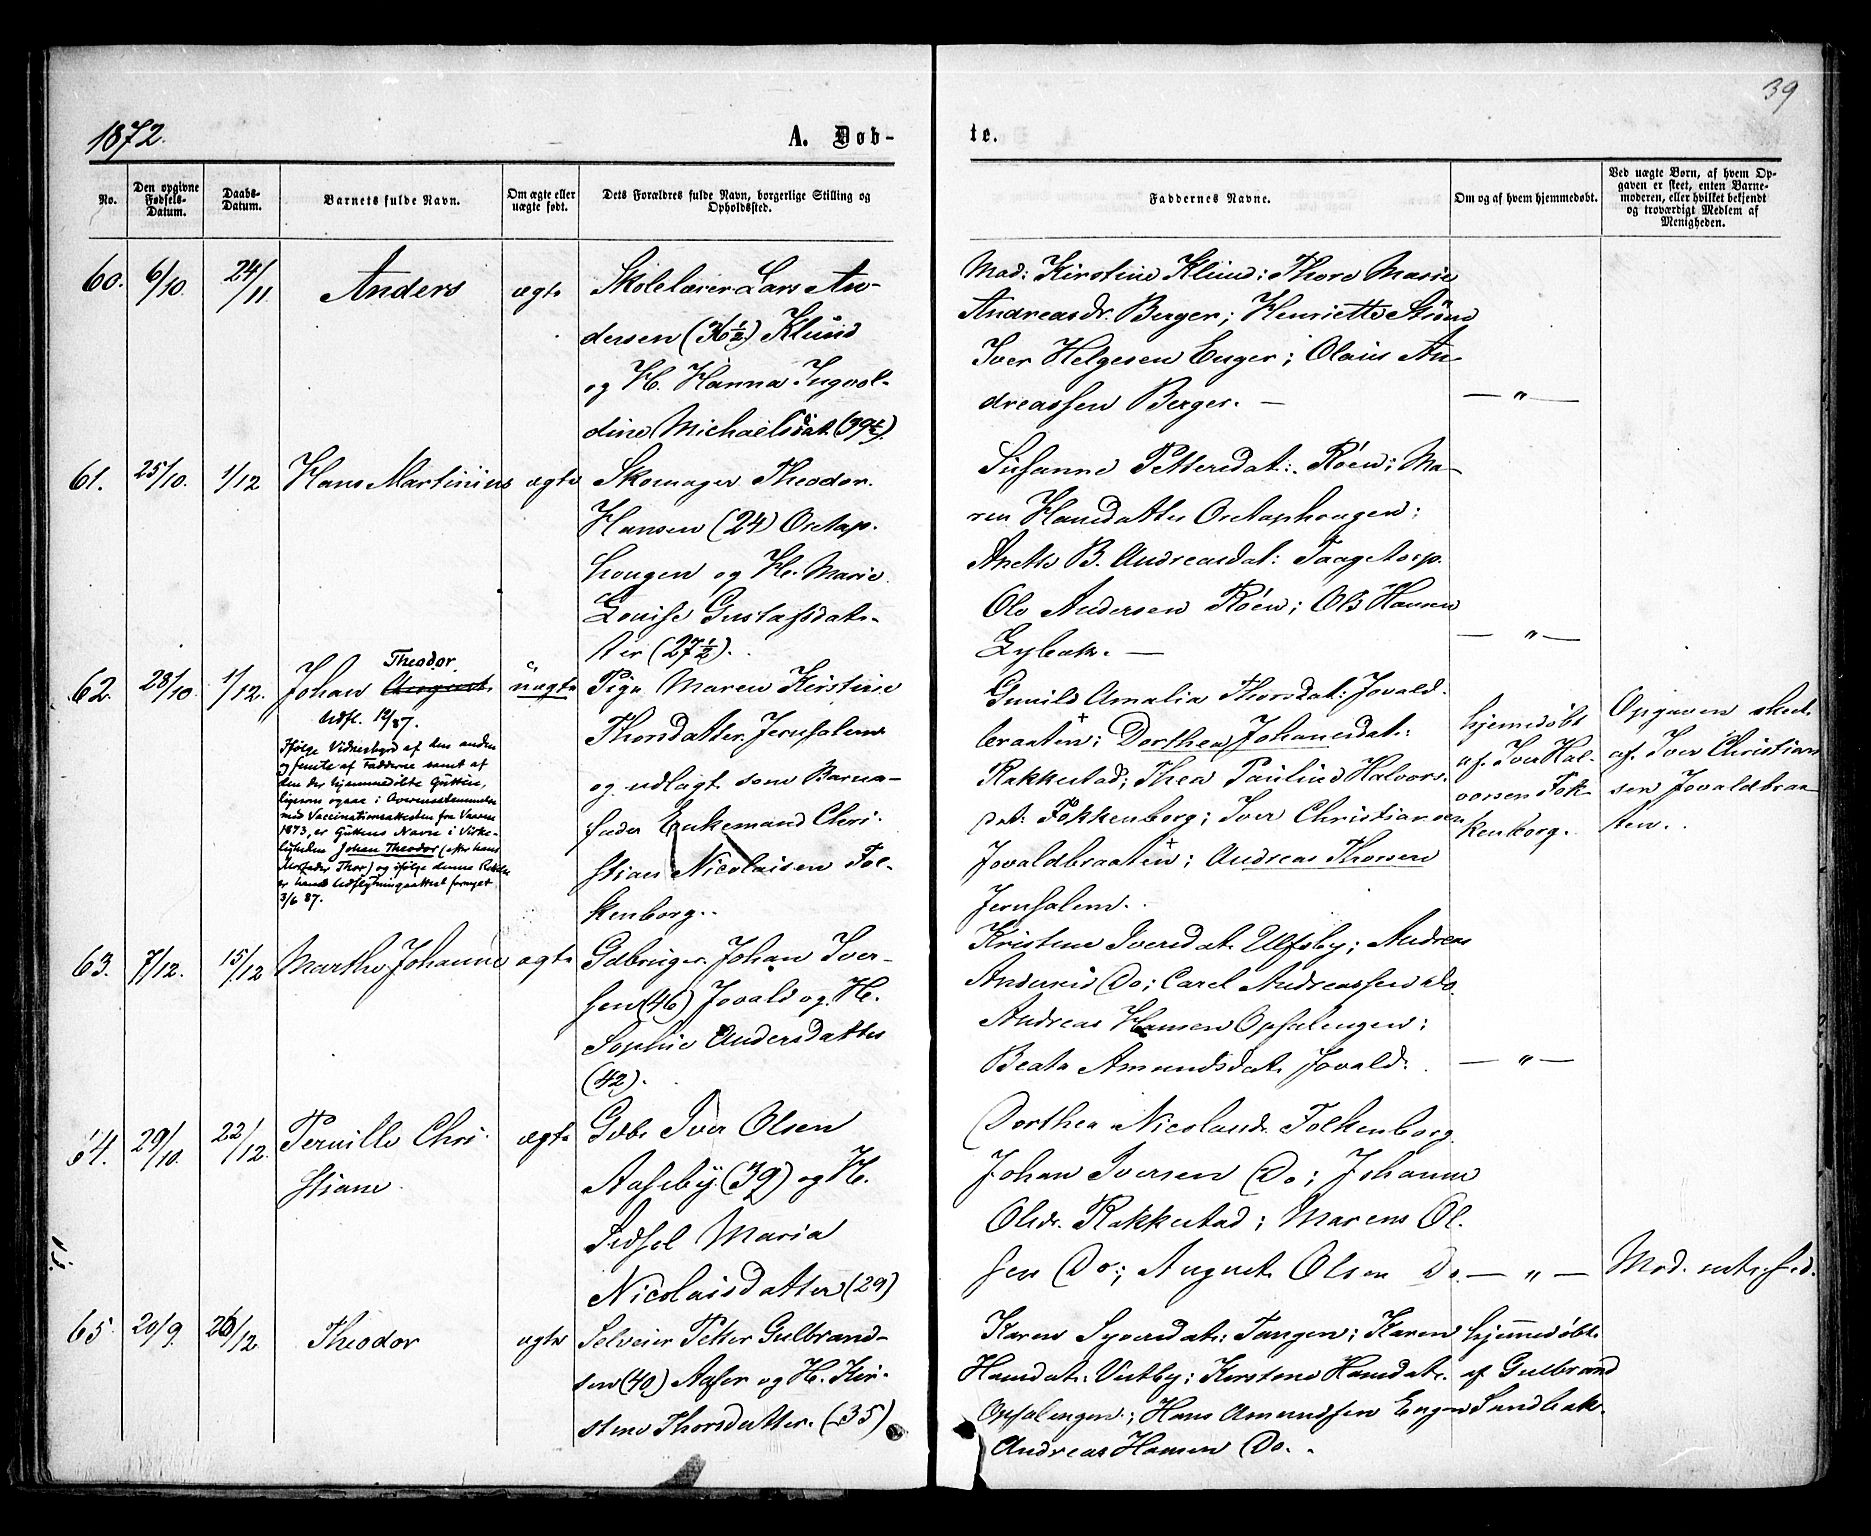 39
1872.
A. Døb-
te.
No.
Den opgivne Fødsels-Datum.
Daabs-Datum.
Barnets fulde Navn.
Om ægte eller uægte født.
Dets Forældres fulde Navn, borgerlige Stilling og Opholdssted.
Faddernes Navne.
Om og af hvem hjemmedøbt.
Ved uægte Børn, af hvem Op-
gaven er skeet, enten Barne-
moderen, eller hvilket bekjendt
og troværdigt Medlem af
Menigheden.
60. 6/10. 24/11 Anders ægte
Skolelærer Lars An-
dersen (36½) Klund
og H. Hanna Ingvol-
dine Michaelsdat.
Mad: Kirstine Klund; Thore Marie
Andreasdr. Berger; Henriette
Iver Helgesen Enger; Olaus An-
dreassen Berger. —
— " —
61. 25/10. 1/12 Hans Martinius ægte
Skomager Theodor
Hansen (24) Ortap-
hougen og H. Marie
Louise Gustafsdat-
ter (27½).
Susanne Pettersdat: Röen; Ma-
ren Hansdatter Ortaphougen;
Anette B. Andreasdat:
Ole Andersen Röen; Ole Hansen
— " —
62. 28/10. 1/12. Johan Theodor uægte
Udfl. 12/87.
Ifølge Vidnesbyrd af den anden
og femte af Fadderne samt af
den der hjemmedøbte Gutten,
ligesom ogsaa i Overensstemmelse
med Vaccinationsattesten fra Vaaren
1873, er Guttens Navn i Virke-
ligheden Johan Theodor (efter hans
Morfader Thor) og ifølge denne Rettelse
er hans Udflytningsattest fornyet
3/6 87.
Pige Maren Kirstine
Thorsdatter Jerusalem
og udlagt som Barna-
fader Enkemand Chri-
stian Nicolaisen Fol-
kenborg.
Gunild Amalia Thorsdat: Jovald-
braaten; Dorthea Johannesdat:
Rakkestad; Thea Pauline Halvors-
dat: Folkenborg; Iver Christiansen
Jovaldbraaten; Andreas Thorsen
Jerusalem.
hjemmedøbt
af Iver Hal-
vorsen Fol-
kenborg.
Opgaven skeet
af Iver Christian-
sen Jovaldsbraa-
ten.
63. 7/12. 15/12 Marthe Johanne ægte
Gdbruger Johan Iver-
sen (46) Jovald og H.
Sophie Andersdatter
(42).
Kristine Iversdat. Ulfsby; Andreas
Do; Carel Andreassen Do.
Andreas Hansen Opsalengen;
Beata Amundsdat. Jovald.
— " —
64. 29/10. 22/12. Pernille Chri-
stiane. ægte
Gdbr Iver Olsen
Aaseby (39) og H.
Sidsel Maria
Nicolaisdatter (29)
Dorthea Nicolaisdr. Folkenborg
Johan Iversen Do; Johanne
Olsdr. Rakkestad; Marens Ol-
sen Do; August Olsen Do. — " —
65. 20/9. 26/12 Theodor ægte
Selveier Petter Gulbrand-
sen (40) Aaser og H. Kir-
stine Thorsdatter. (35)
Karen Syversdat: Tangen; Karen
Hansdat: Vestby; Kerstine Hansdat.
Opsalengen; Hans Amundsen Engen
Andreas Hansen Do.
hjemmedøbt
af Gulbrand
Sandbak.